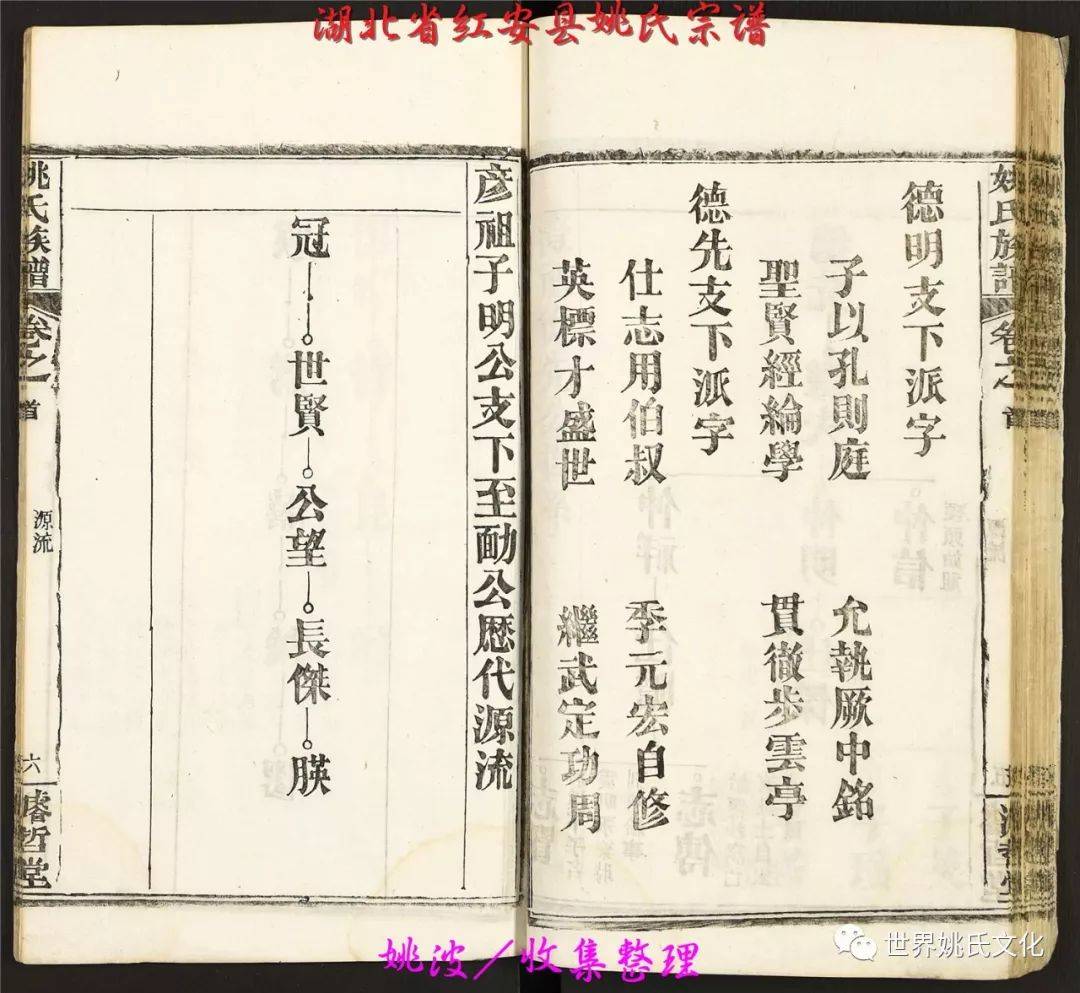 湖北省红安县姚氏宗谱
姚氏族譜
卷之
首
德明支下派字
子以孔則庭 允執厥中銘
聖賢經綸學 貫徹步雲亭
德先支下派字
仕志用伯叔 季元宏自修
英標才盛世 繼武定功周
彦祖子明公支下至勔公歴代源流
冠 世賢 公望 長傑 朠
姚氏族譜
卷之
首
源流
六
濬哲堂
姚波/收集整理
世界姚氏文化